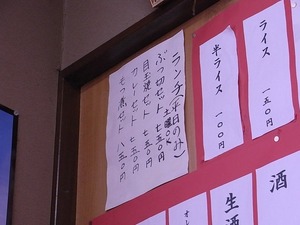 ライス 一五〇円
半ライス 一〇〇円
ランチ(平日のみ)
土曜OK
ぶつ切セット 七五〇円
目玉焼セット 七五〇円
カレーセット 七五〇円
もつ煮セット 八五〇円
酒
生酒